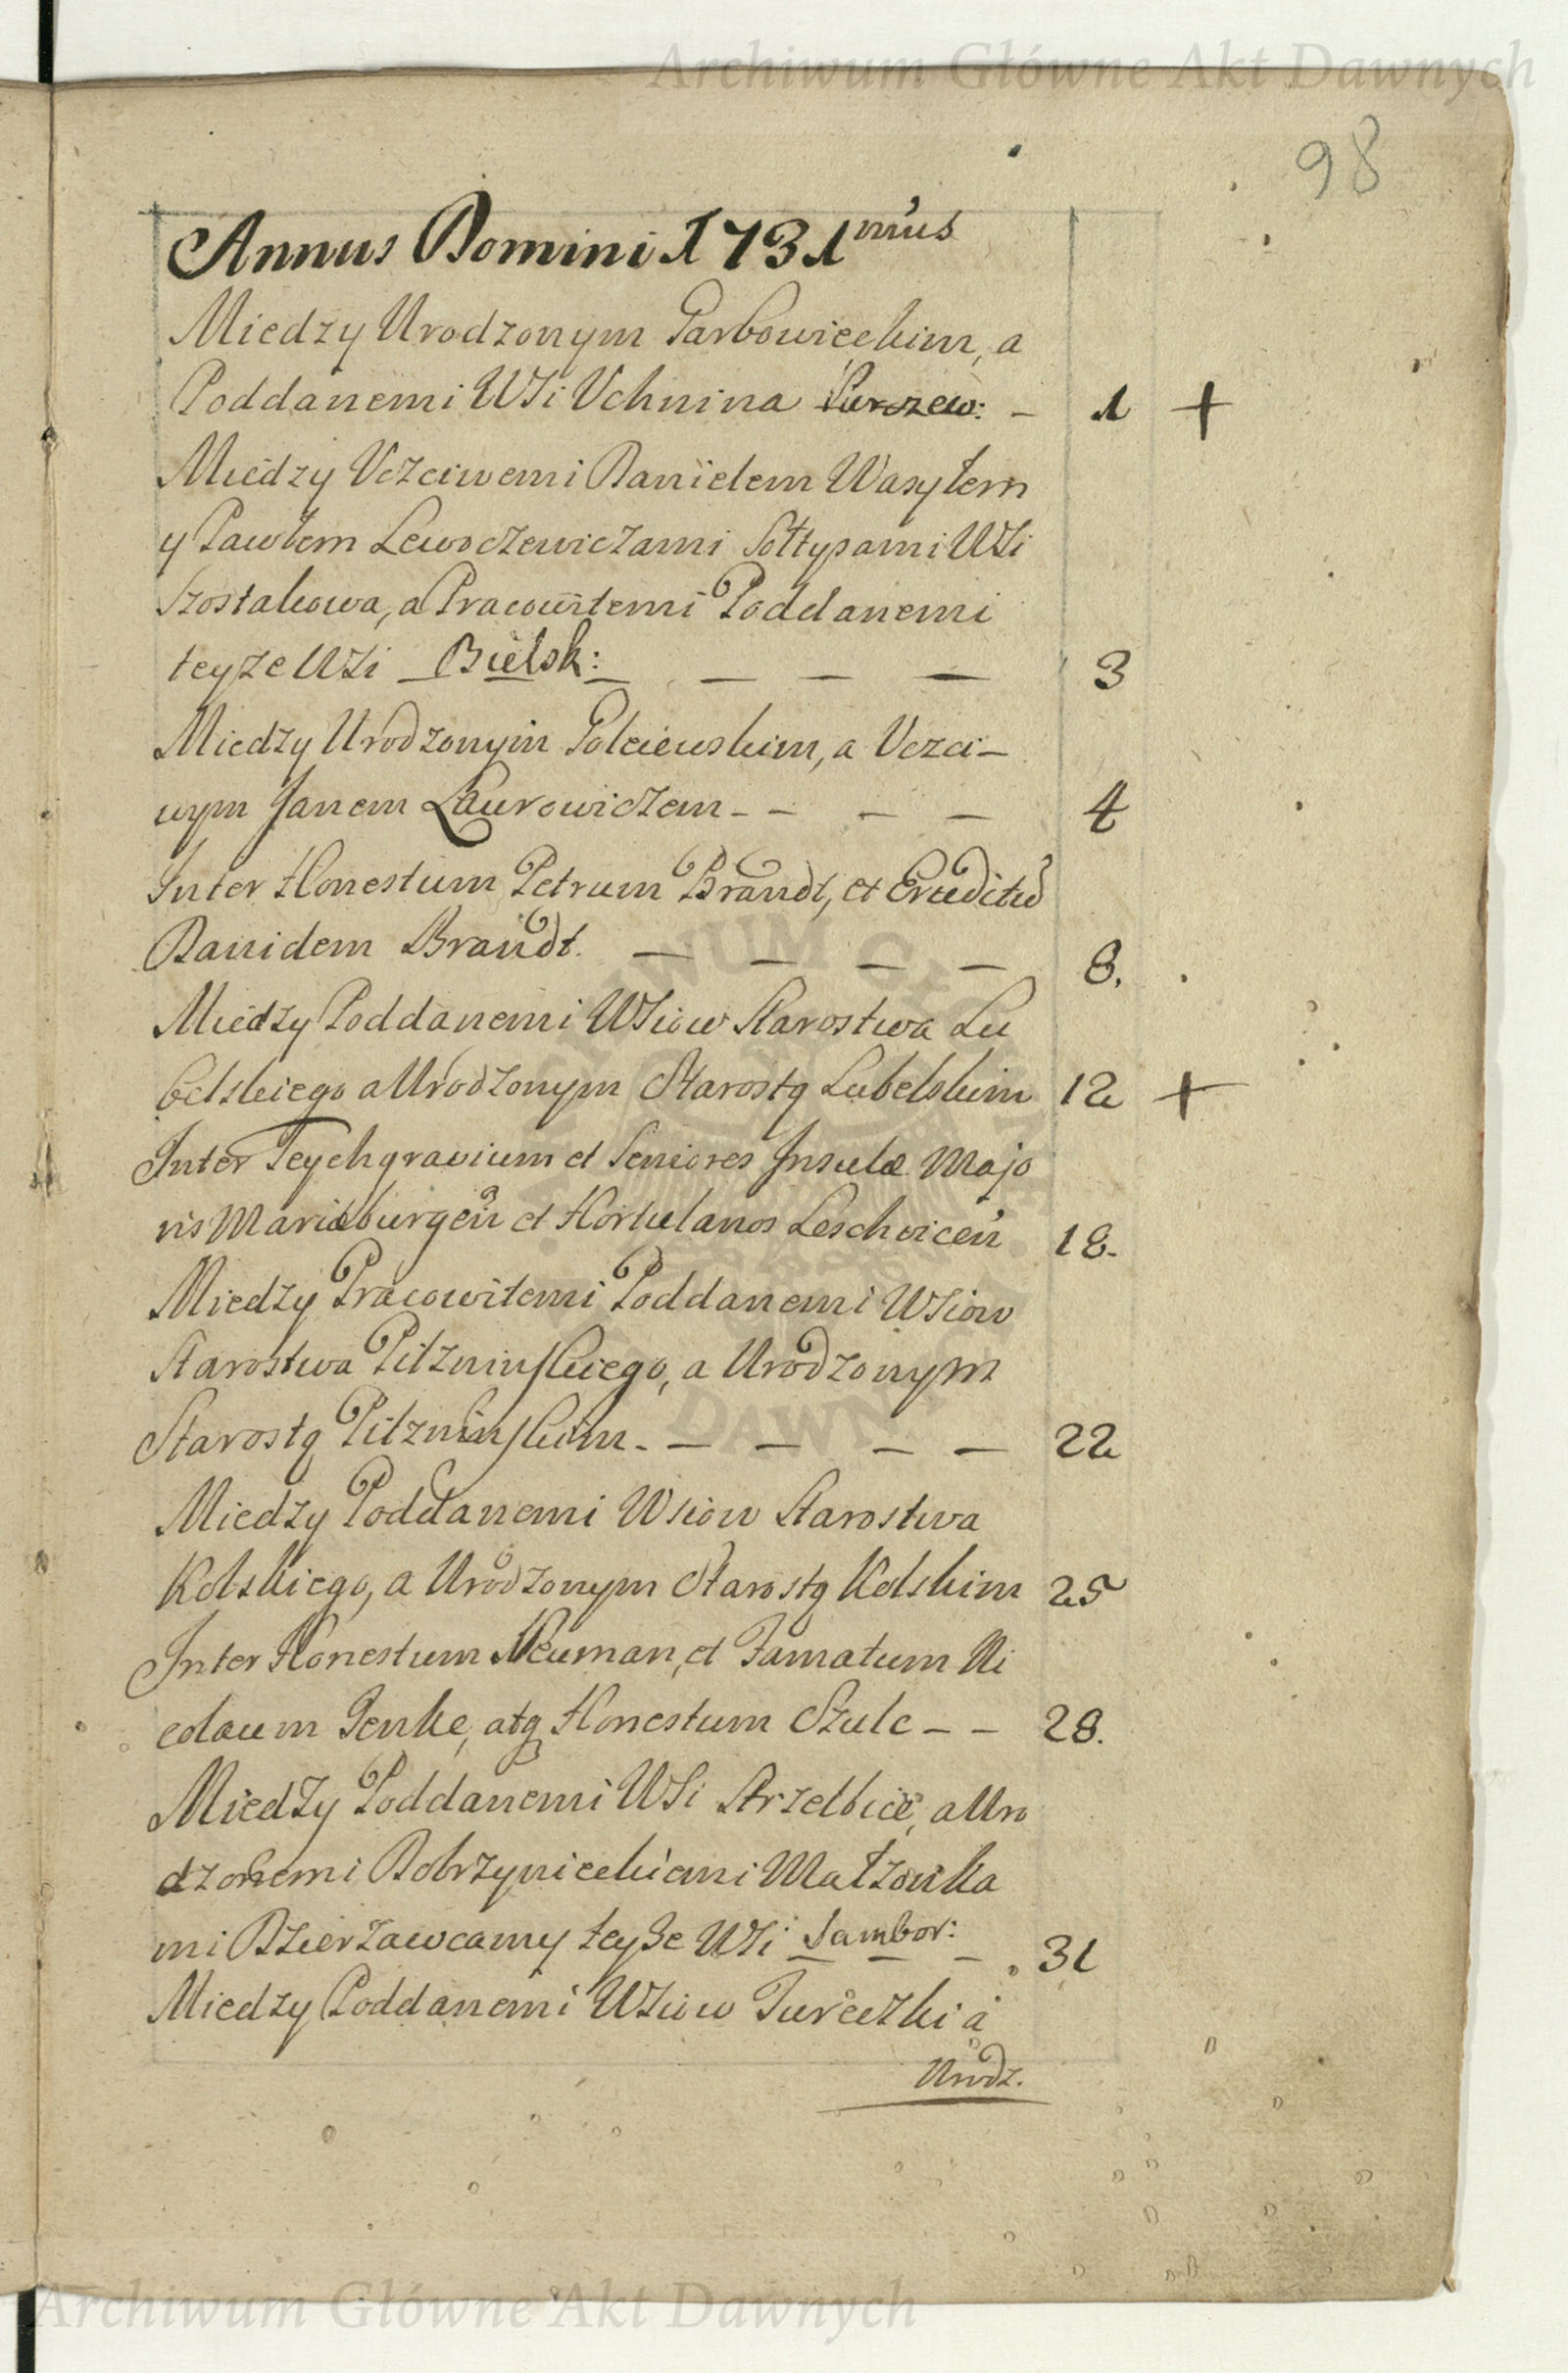 Archiwum Główne Akt Dawnych
98
Annus Domini 1731mus
Miedzy Urodzonym Parbowieckim, a
Poddanemi WSi Uchnina Parczew: – 1 +
Miedzy Vczciwemi Danielem Wasylem
y Pawłem Lewoczewiczami Sołtysami WSi
Szostakowa, a Pracowitemi Poddanemi
teyze WSi Bielsk: – – – 3
Miedzy Urodzonym Polciewskim, a Vczci–
wym Janem Laurowiczem – – – – 4
Inter Honestum Petrum Brandt, et Ereditũ
Davidem Brandt. – – – – 8.
Miedzy Poddanemi WSiow Starostwa Lu
belskiego a Urodzonym Starostą Lubelskim 12 +
Inter Teychgravium et Seniores Insulæ Majo
ris Mariæburgen̄ et Hortulanos Leschvicen̄ 18.
Miedzy Pracowitemi Poddanemi WSiow
Starostwa Pilzninskiego, a Urodzonym
Starostą Pilzninskim. – – – – 22
Miedzy Poddanemi Wsiow Starostwa
Kolskiego, a Urodzonym Starostą Kolskim 25
Inter Honestum Neuman, et Famatum Ni
colaum Penke, atq Honestum Szulc – – 28.
Miedzy Poddanemi WSi Strzelbice, a Uro
dzonemi Dobrzynieckiemi Małzonka
mi Dzierzawcamy teyze WSi Sambor: – 31
Miedzy Poddanemi WSiow Tureczki a
Urodz.
Archiwum Główne Akt Dawnych